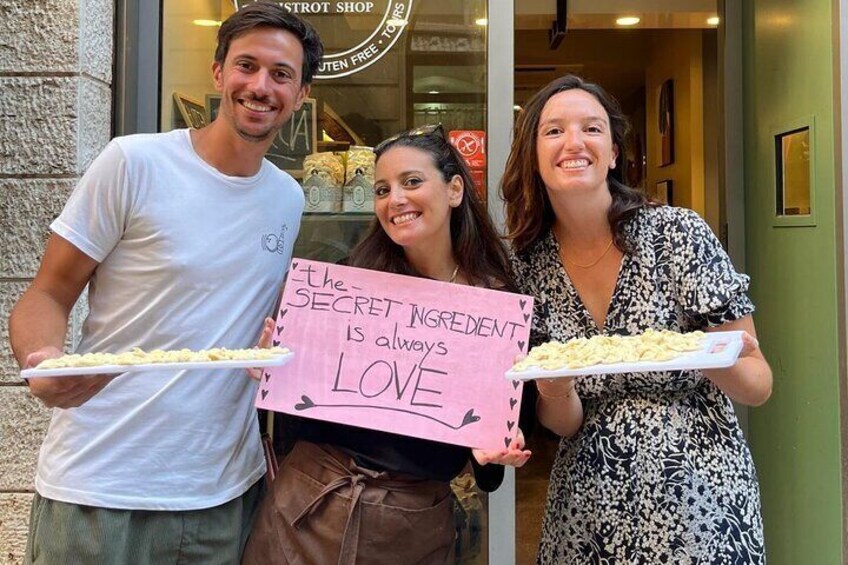 BISTROT SHOP
GLUTEN FREE • TOURS
- the -
SECRET INGREDIENT
is always
LOVE